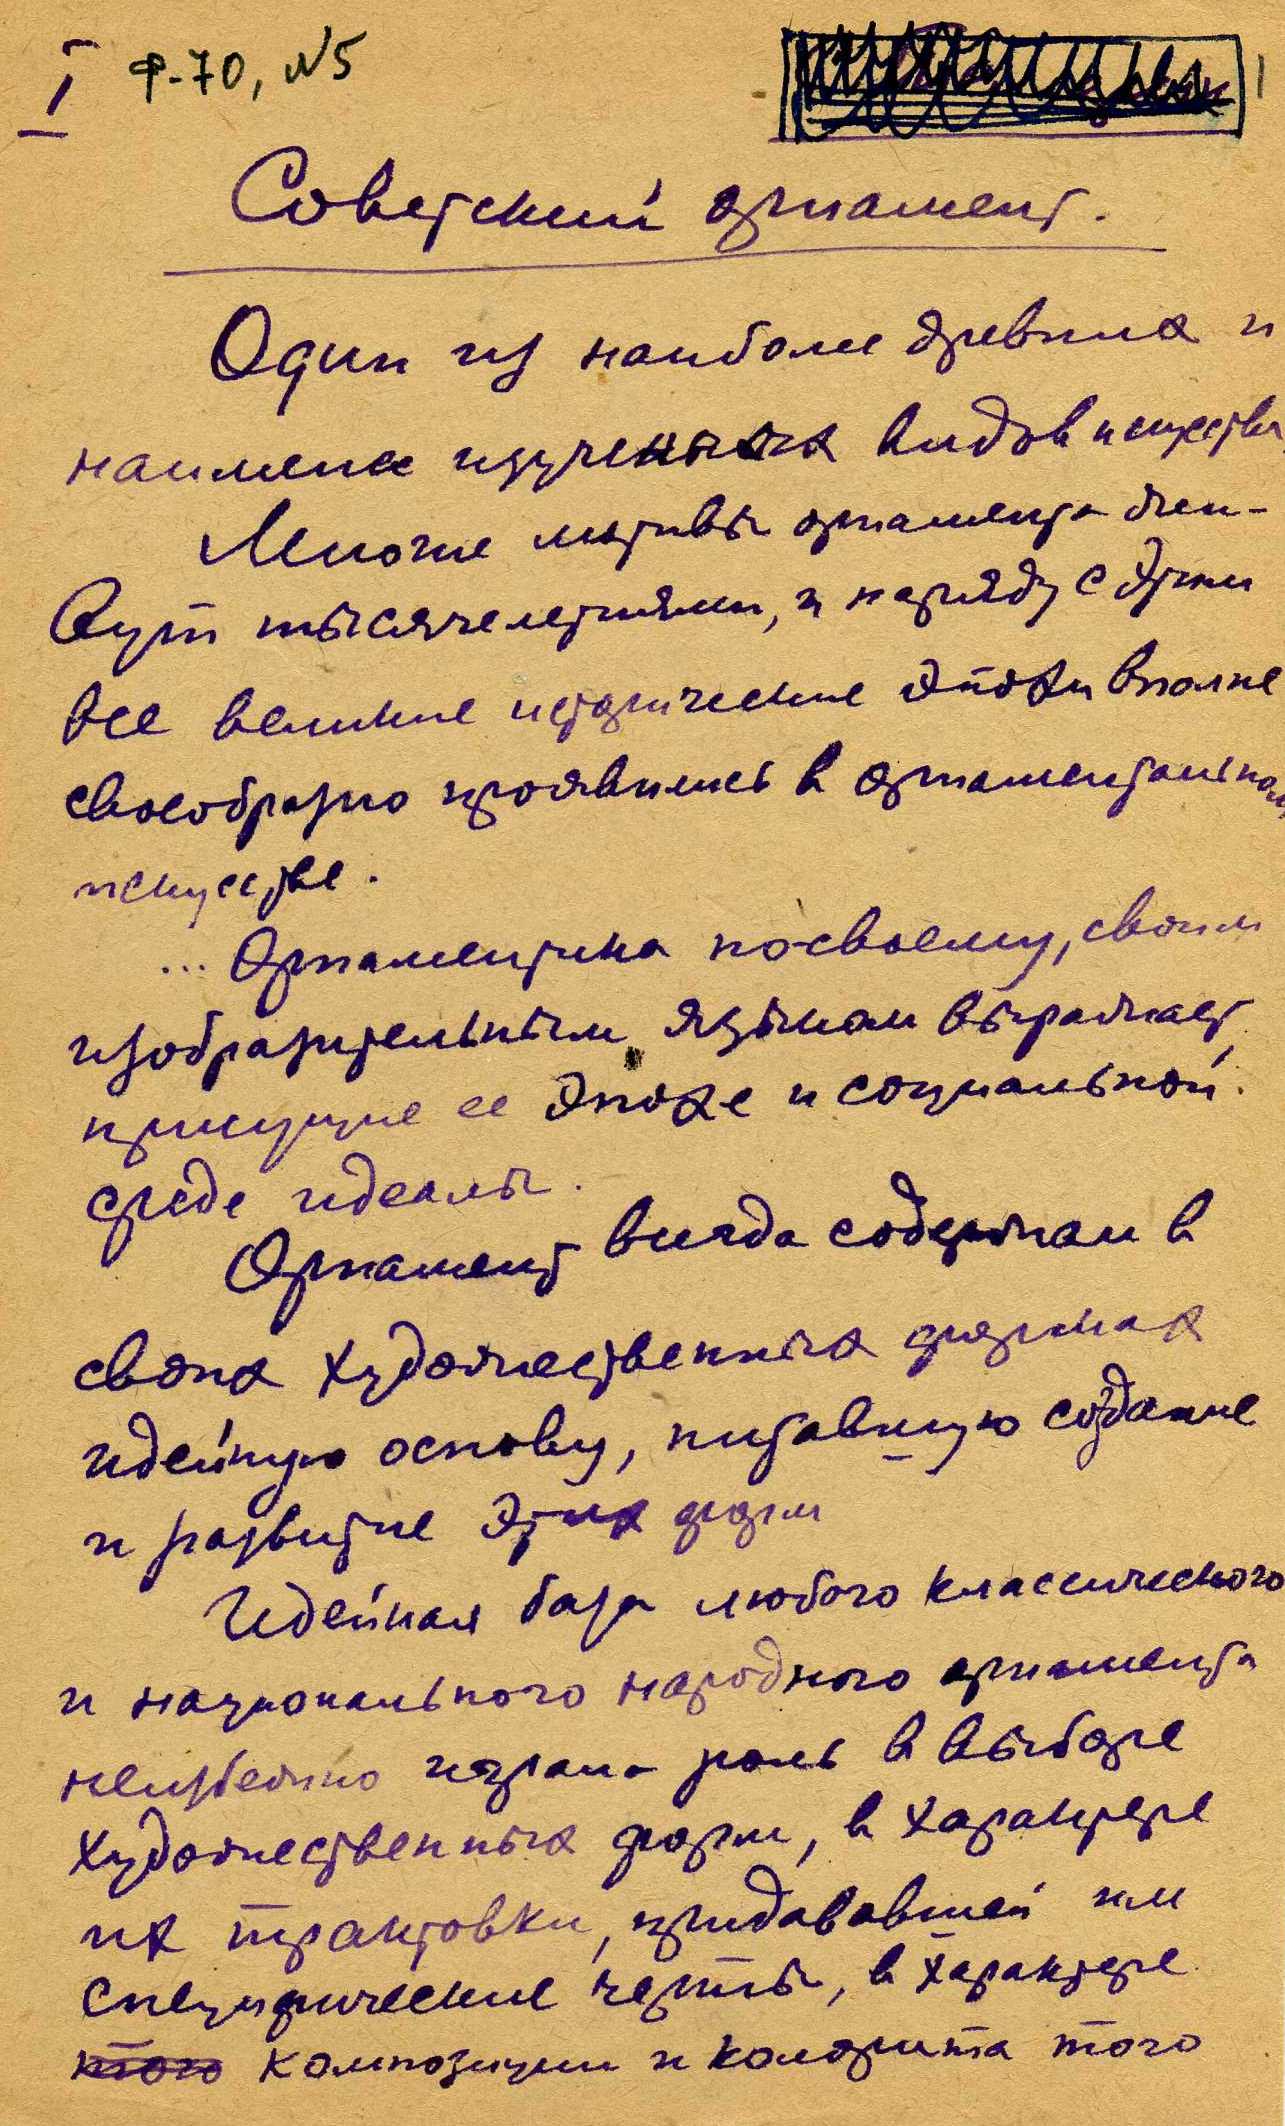 I Ф-70, №5
1
Советский орнамент.
Один из наиболее древних и
наименее изученных видов искусства
Многие мотивы орнамента жи-
вут тысячелетиями, и наряду с этим
все великие исторические эпохи вполне
своеобразно проявились в орнаментальном
искусстве.
... Орнаментика по-своему, своим
изобразительным языком выражает
присущие ее эпохе и социальной
среде идеалы.
Орнамент всегда содержал в
своих художественных формах
идейную основу, питавшую создание
и развитие этих форм
Идейная база любого классического
и национального народного орнамента
неизбежно играла роль в выборе
художественных форм, в характере
их трактовки, придававшей им
специфические черты, в характере
композиции и колорита того